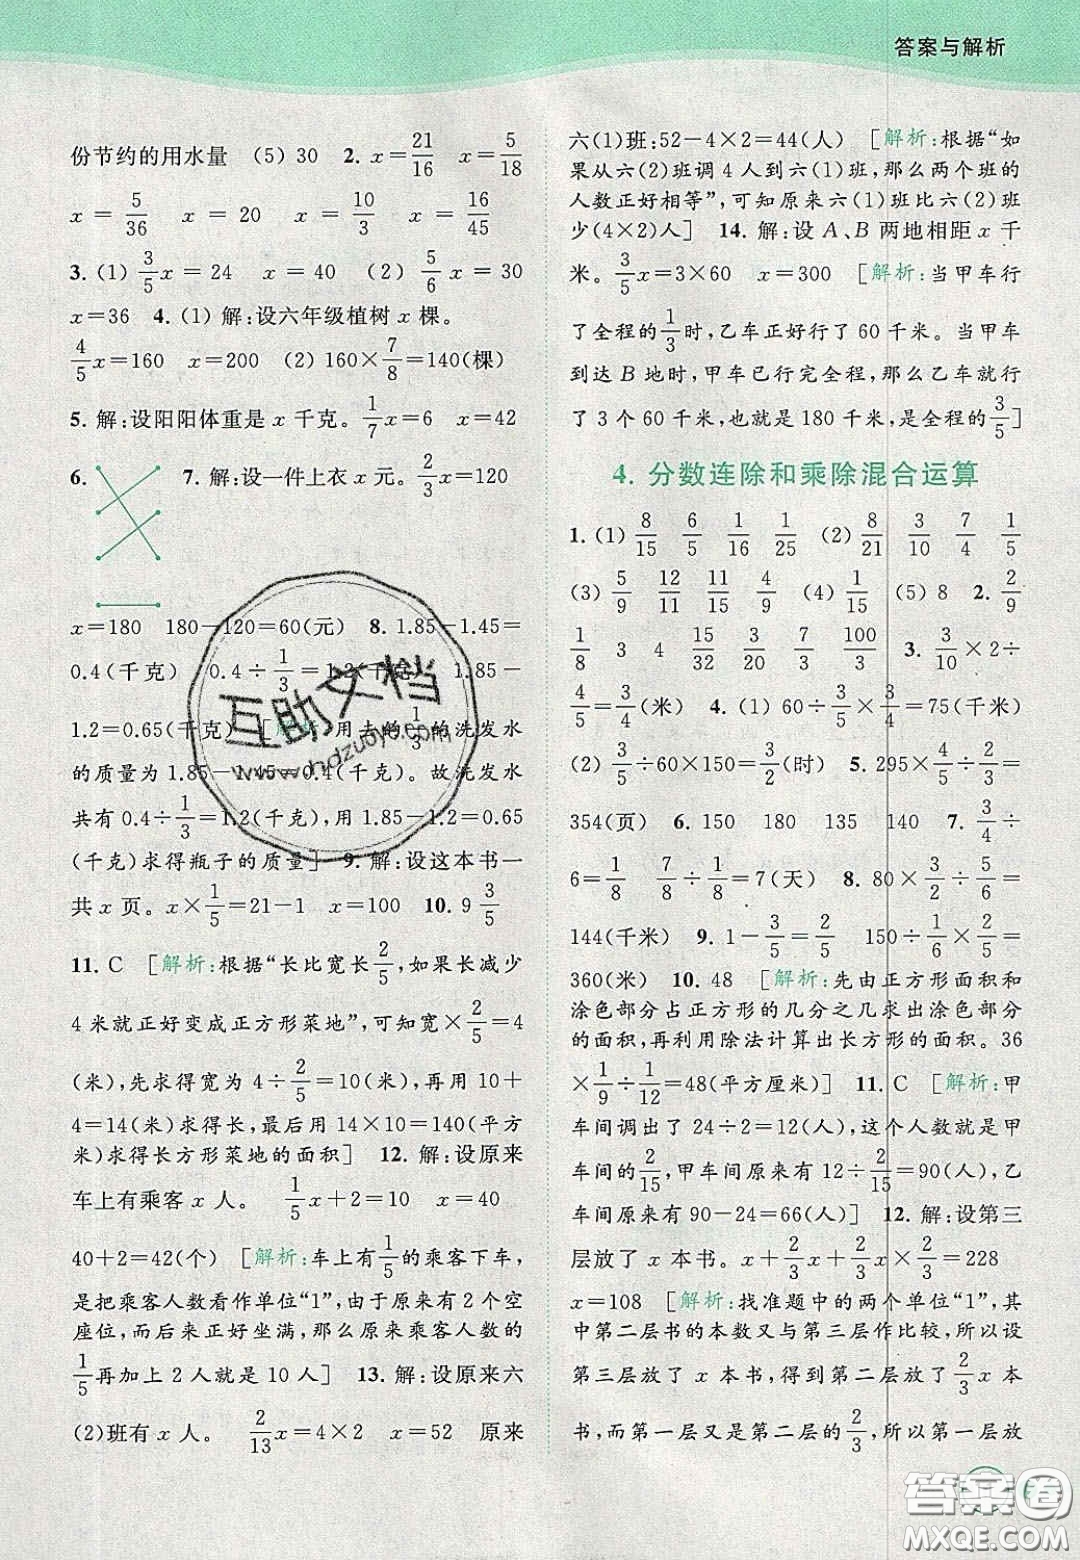 答案与解析
份节约的用水量 (5) 30 2. x=21/16 x=5/18
x=5/36 x=20 x=10/3 x=16/45
3. (1) 3/5x=24 x=40 (2) 5/6x=30
x=36 4. (1) 解:设六年级植树 x 棵。
4/5x=160 x=200 (2) 160×7/8=140(棵)
5. 解:设阳阳体重是 x 千克。1/7x=6 x=42
6. 7. 解:设一件上衣 x 元。2/3x=120
x=180 180-120=60(元) 8. 1.85-1.45=
0.4(千克) 0.4÷1/3=1.2(千克) 1.85-
1.2=0.65(千克) [解析:用去的1/3的洗发水
的质量为 1.85-1.45=0.4(千克)。故洗发水
共有 0.4÷1/3=1.2(千克),用 1.85-1.2=0.65
(千克)求得瓶子的质量] 9. 解:设这本书一
共 x 页。x×1/5=21-1 x=100 10. 9 3/5
11. C [解析:根据“长比宽长2/5,如果长减少
4 米就正好变成正方形菜地”,可知宽×2/5=4
(米),先求得宽为 4÷2/5=10(米),再用 10+
4=14(米)求得长,最后用 14×10=140(平方
米)求得长方形菜地的面积] 12. 解:设原来
车上有乘客 x 人。 1/5x+2=10 x=40
40+2=42(个) [解析:车上有1/5的乘客下车,
是把乘客人数看作单位“1”,由于原来有 2 个空
座位,而后来正好坐满,那么原来乘客人数的
1/5再加上 2 人就是 10 人] 13. 解:设原来六
(2)班有 x 人。 2/13x=4×2 x=52 原来
六(1)班:52-4×2=44(人) [解析:根据“如
果从六(2)班调 4 人到六(1)班,那么两个班的
人数正好相等”,可知原来六(1)班比六(2)班
少(4×2)人] 14. 解:设 A、B 两地相距 x 千
米。3/5x=3×60 x=300 [解析:当甲车行
了全程的1/3时,乙车正好行了 60 千米。当甲车
到达 B 地时,甲车已行完全程,那么乙车就行
了 3 个 60 千米,也就是 180 千米,是全程的3/5]
4. 分数连除和乘除混合运算
1. (1) 8/15 5/6 1/16 1/25 (2) 8/21 3/10 7/4 1/5
(3) 5/9 12/11 11/15 4/9 (4) 1/15 (5) 8 2. 2/9
1/8 3 4 15/32 3/20 7/3 100/3 3. 3/10×2÷
4/5=3/4(米) 4. (1) 60÷3/5×3/4=75(千米)
(2) 3/5÷60×150=3/2(时) 5. 295×4/5÷2/3=
354(页) 6. 150 180 135 140 7. 3/4÷
6=1/8 7/8÷1/8=7(天) 8. 80×3/2÷5/6=
144(千米) 9. 1-3/5=2/5 150÷1/6×2/5=
360(米) 10. 48 [解析:先由正方形面积和
涂色部分占正方形的几分之几求出涂色部分
的面积,再利用除法计算出长方形的面积。36
×1/9÷1/12=48(平方厘米)] 11. C [解析:甲
车间调出了 24÷2=12(人),这个人数就是甲
车间的2/15,甲车间原来有 12÷2/15=90(人),乙
车间原来有 90-24=66(人)] 12. 解:设第三
层放了 x 本书。x+2/3x+2/3x×2/3=228
x=108 [解析:找准题中的两个单位“1”,其
中第二层书的本数又与第三层作比较,所以设
第三层放了 x 本书,得到第二层放了2/3x 本
书,而第一层又是第二层的2/3,所以第一层放
互助文档
www.hdzuoye.com
答案圈
MXQE.COM